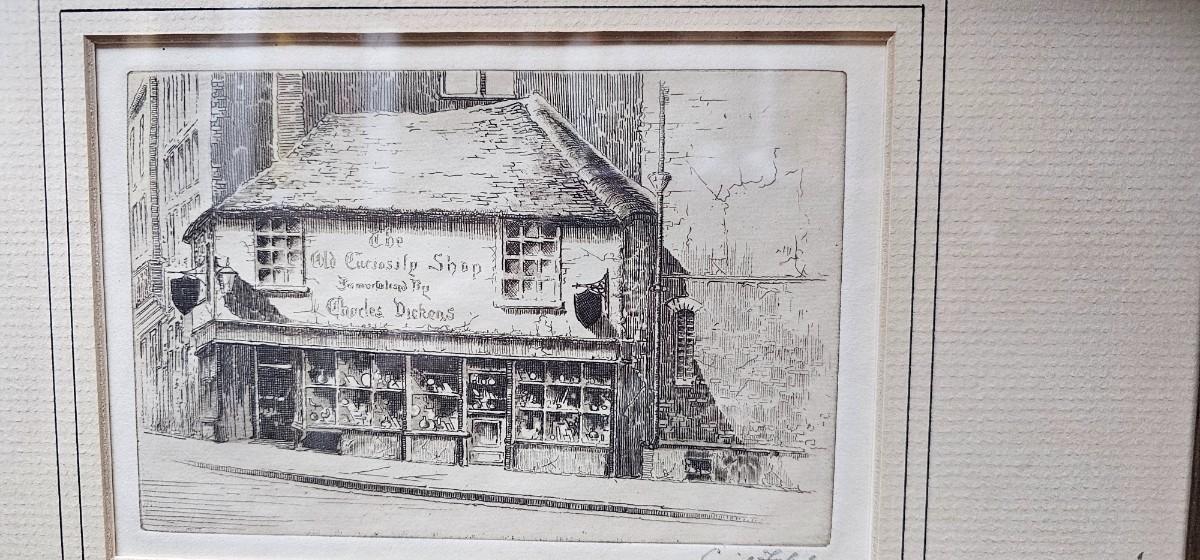 The
Old Curiosity Shop
Immortalised By
Charles Dickens